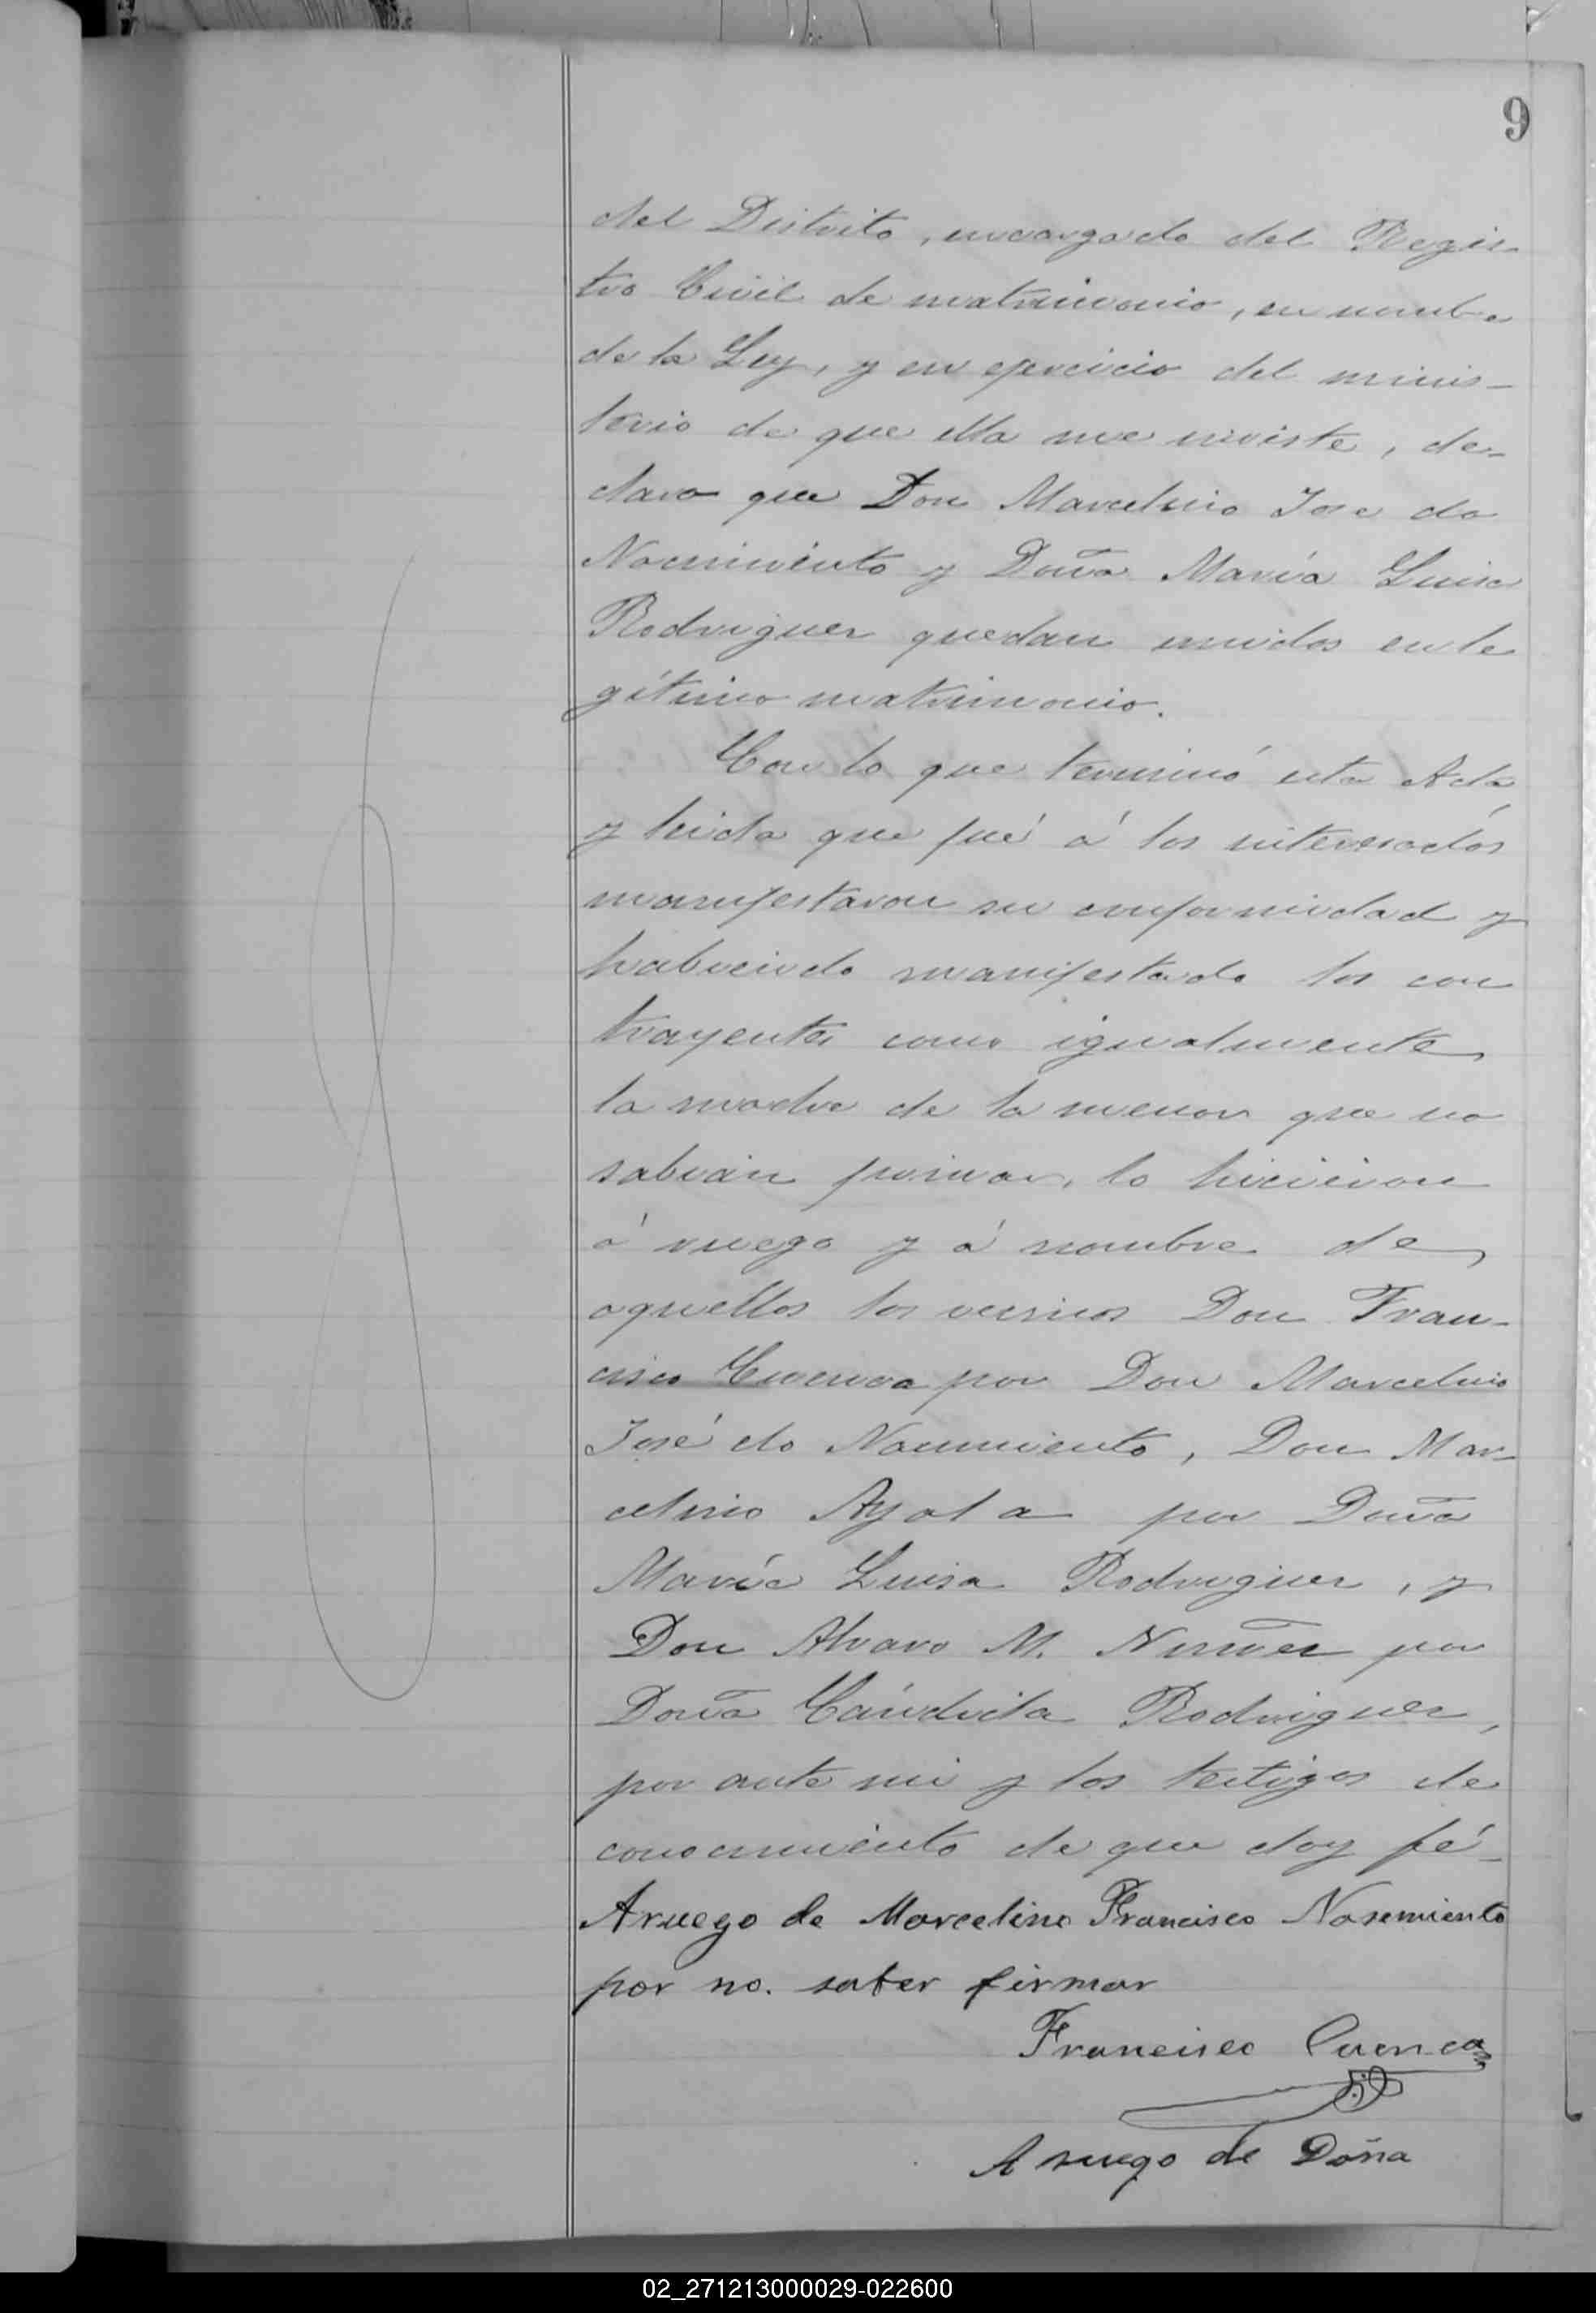 9
del Distrito, encargado del Regis-
tro Civil de matrimonio, en nombre
de la Ley, y en ejercicio del minis-
terio de que ella me inviste, de-
claro que Don Marcelino Jose do
Nacimiento y Doña María Luisa
Rodriguez quedan unidos en le
gítimo matrimonio.
Con lo que terminó esta Acta
y leida que fué á los interesados
manifestaron su conformidad y
habiendo manifestado los con
trayentes como igualmente
la madre de la menor que no
sabian firmar, lo hicieron
á ruego y á nombre de
aquellos los vecinos Don Fran-
cisco Cuenca por Don Marcelino
José do Nacimiento, Don Mar-
celino Ayala por Doña
María Luisa Rodriguez, y
Don Alvaro M. Nuñez por
Doña Cándida Rodriguez,
por ante mi y los testigos de
conocimiento de que doy fé-
Aruego de Marcelino Francisco Nasemiento
por no. saber firmar
Francisco Cuenca
A ruego de Doña
02_271213000029-022600